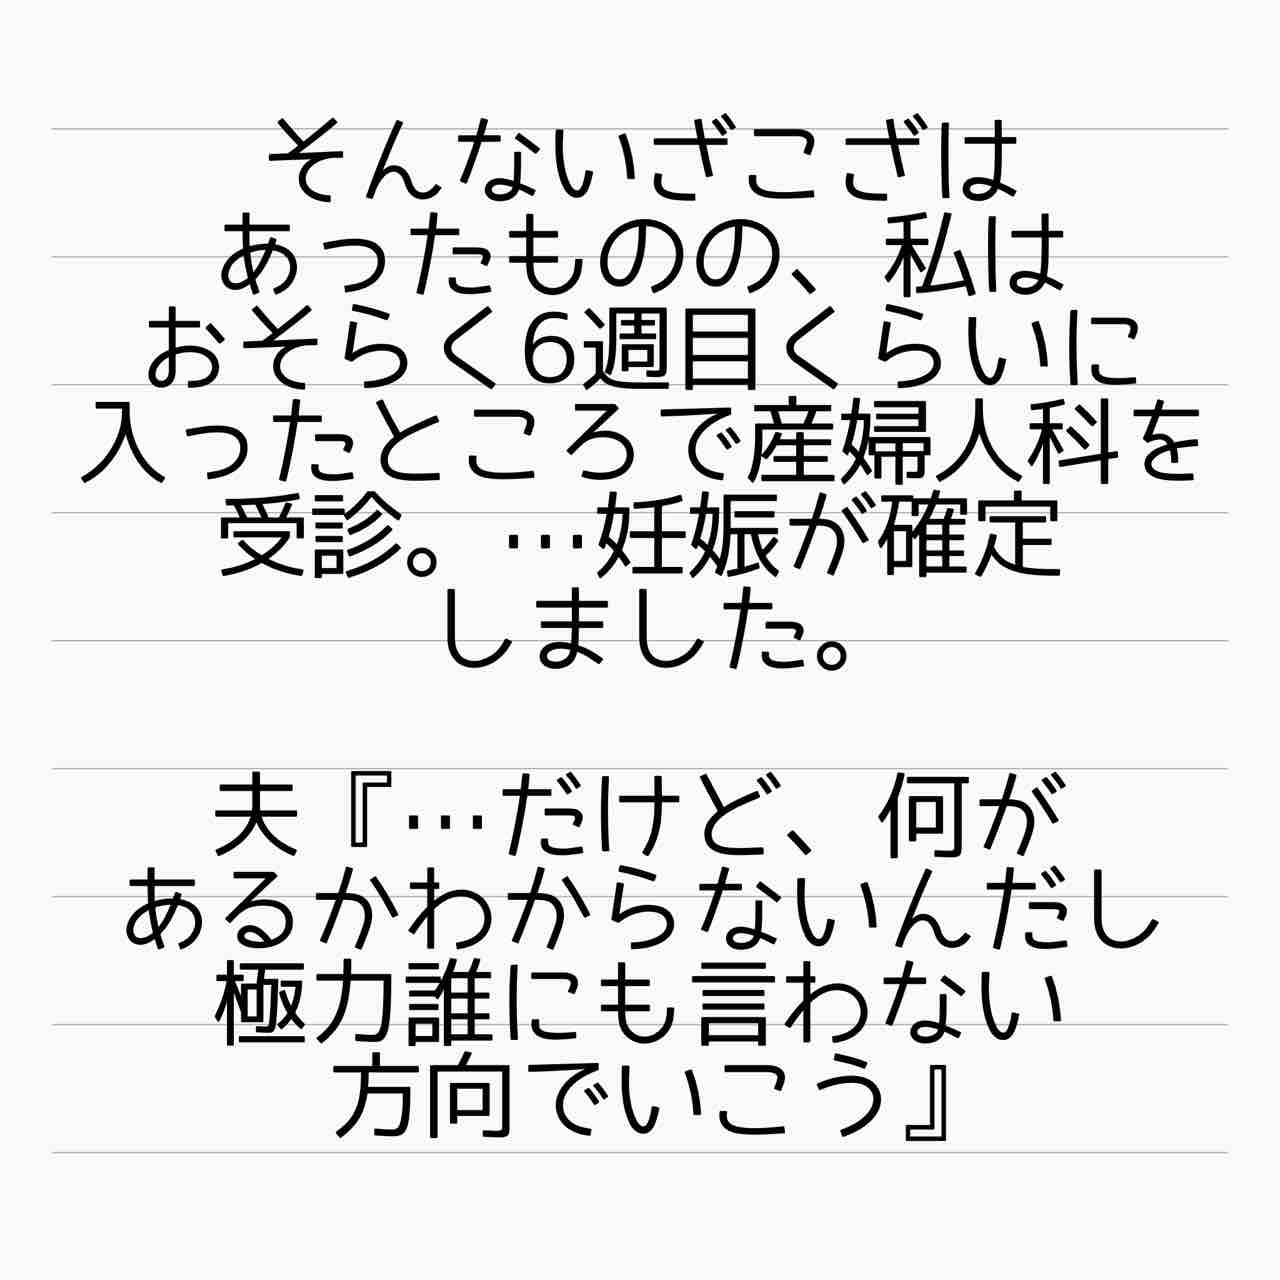 そんないざこざは
あったものの、私は
おそらく6週目くらいに
入ったところで産婦人科を
受診。…妊娠が確定
しました。
夫『…だけど、何が
あるかわからないんだし
極力誰にも言わない
方向でいこう』